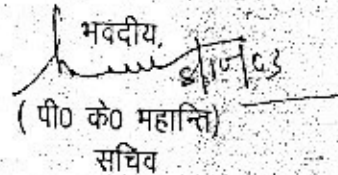 भवदीय,
8/10/03
( पी0 के0 महान्ति)
सचिव